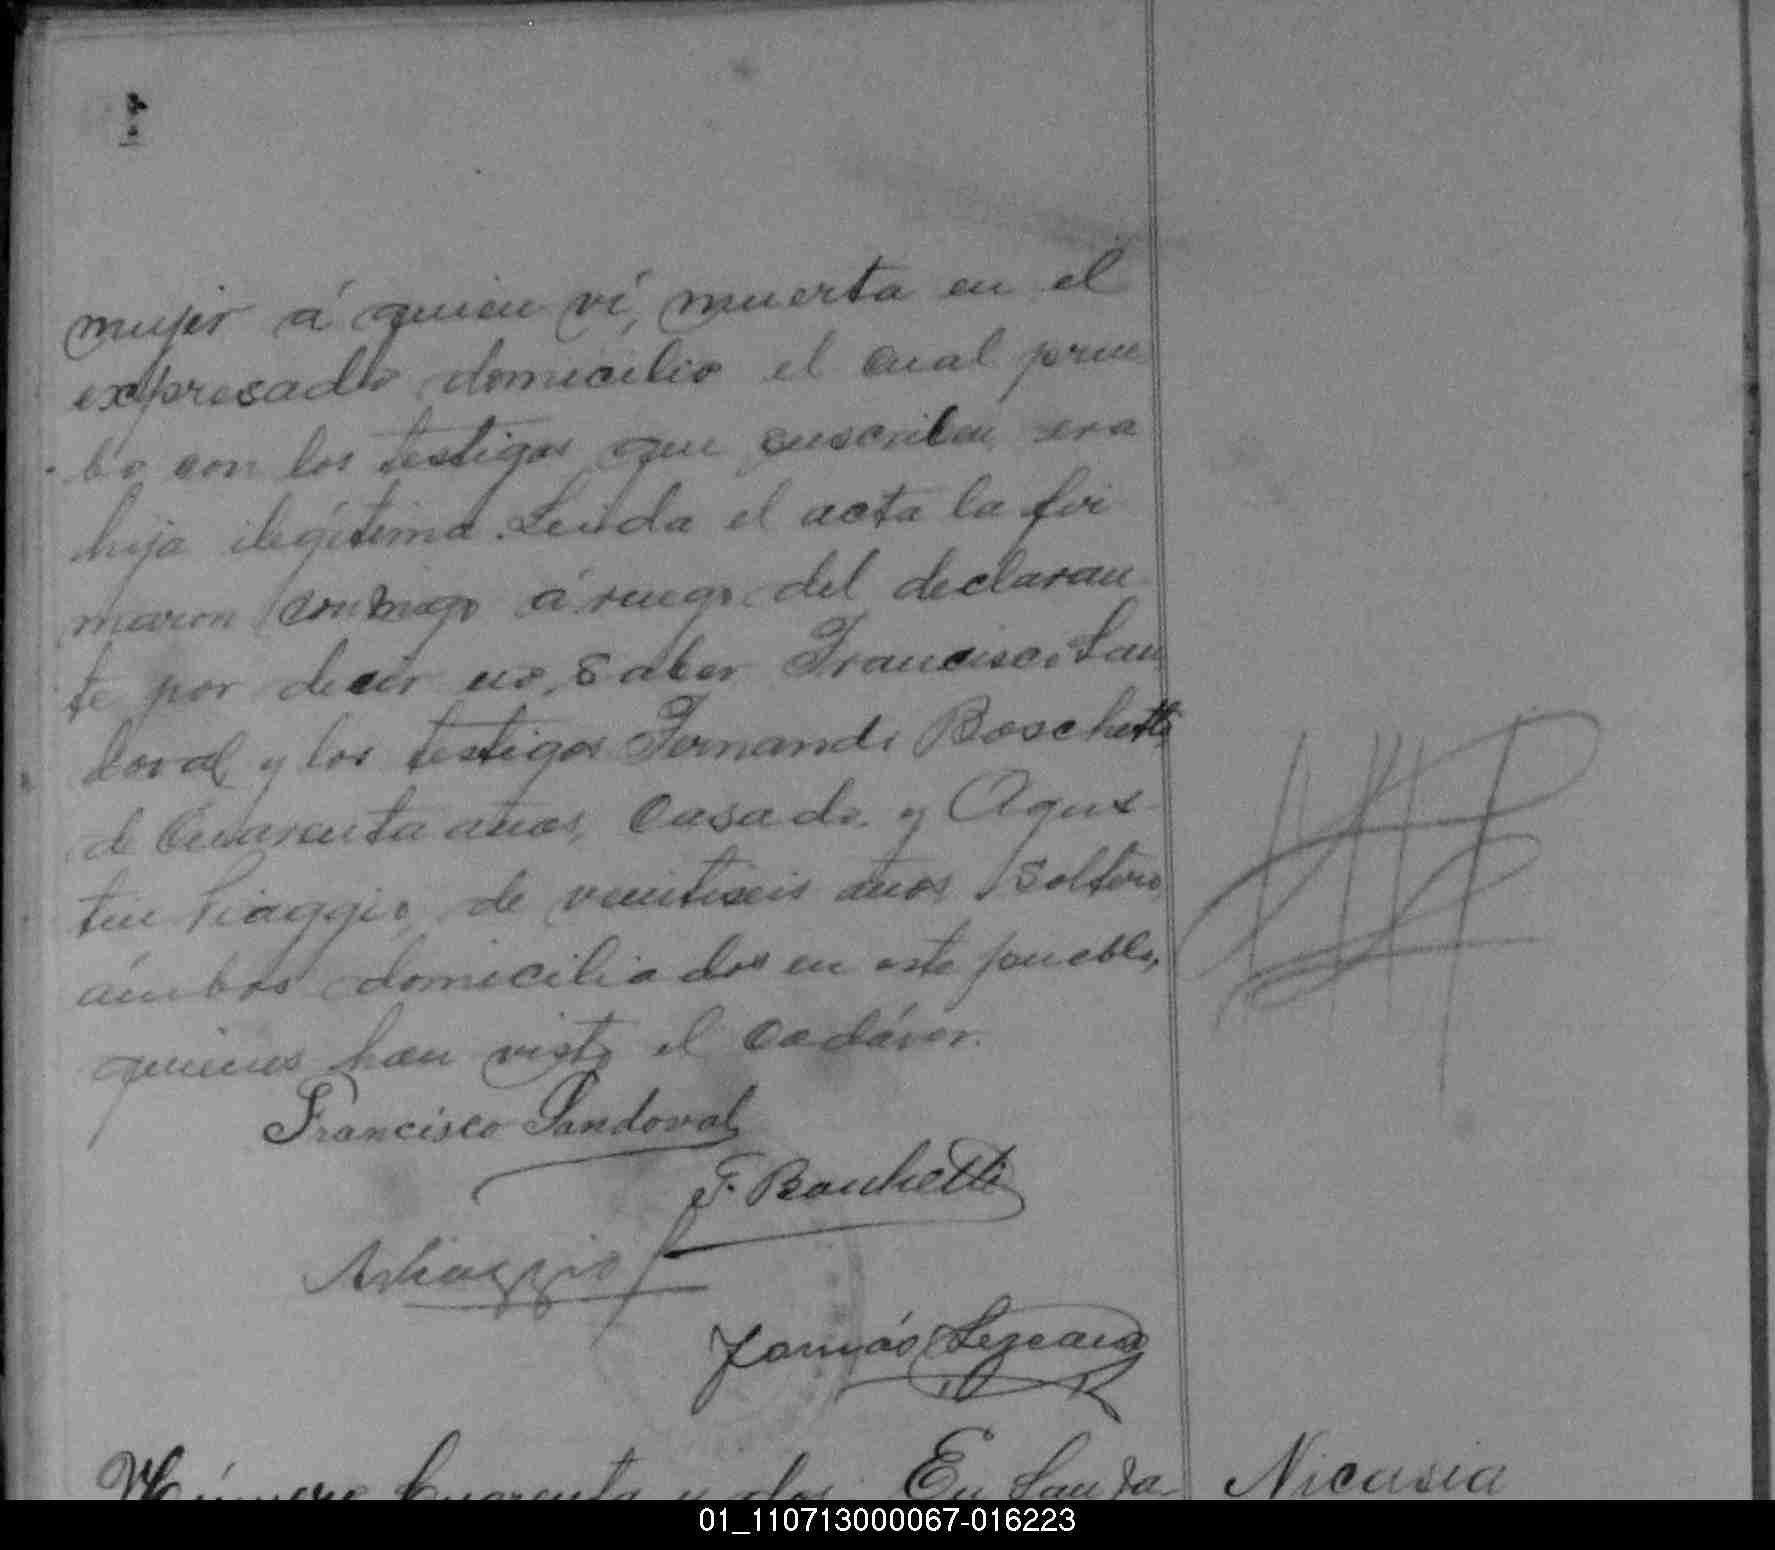 mujer á quien ví, muerta en el
expresado domicilio el cual prue
bo con los testigos que suscriben era
hija ilegítima. Leida el acta la fir
maron conmigo á ruego del declaran
te por decir no saber Francisco San
doval y los testigos Fernando Boschetti
de Cuarenta años, Casado y Agus
tin Piaggio, de veintiseis años Soltero,
ámbos domiciliados en este pueblo,
quienes han visto el Cadáver.
Francisco Sandoval
F. Boschetti
A Piaggio
Tomás Lezcano
Número Cuarenta y dos. En San
Nicasia
01_110713000067-016223